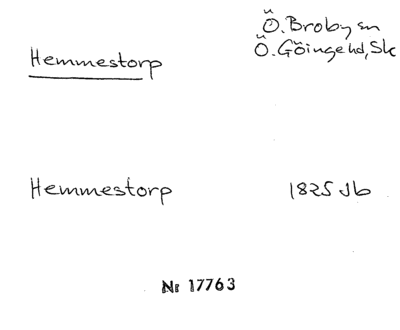 Hemmestorp
Ö. Broby sn
Ö. Göinge hd, Sk
Hemmestorp 1825 Jb
Nr 17763